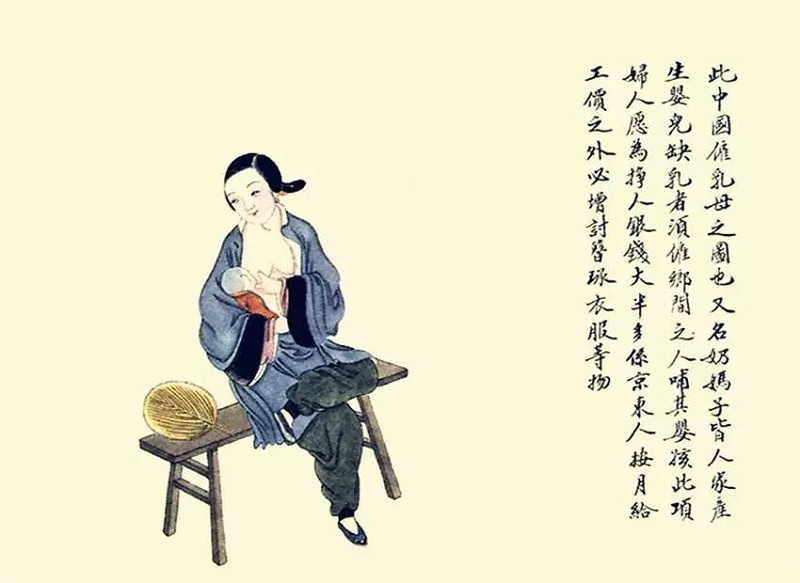 此中國僱乳母之圖也又名奶媽子皆人家産
生嬰兒缺乳者須僱鄉間之人哺其嬰孩此項
婦人愿為掙人銀錢大半多係京東人按月給
工價之外必增討簪環衣服等物